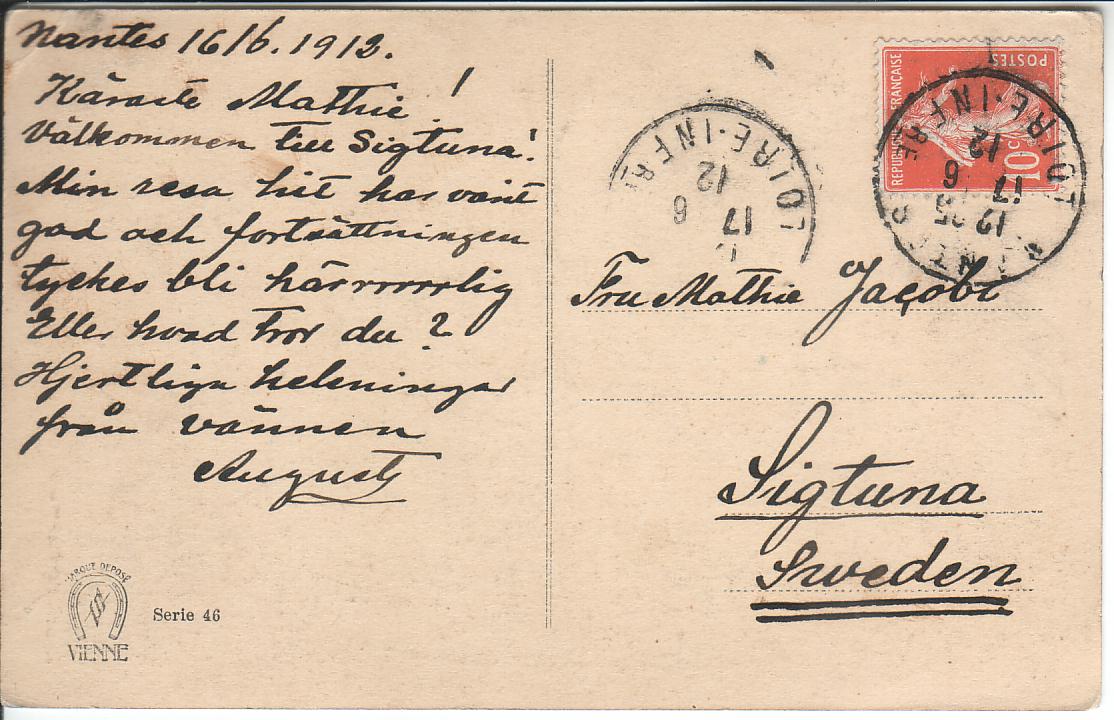 Nantes 16/6. 1912.
Käraste Mathie!
Välkommen till Sigtuna!
Min resa hit har varit
god och fortsättningen
tyckes bli härrrrrrlig
Eller hvad tror du?
Hjertliga helsningar
från vännen
August
MARQUE DEPOSÉ
VIENNE
Serie 46
LOIRE-INFRE
12
6
17
POSTES
REPUBLIQUE FRANÇAISE
10c
LOIRE-INFRE
12
6
17
12 25
Fru Mathie Jaçobi
Sigtuna
Sweden